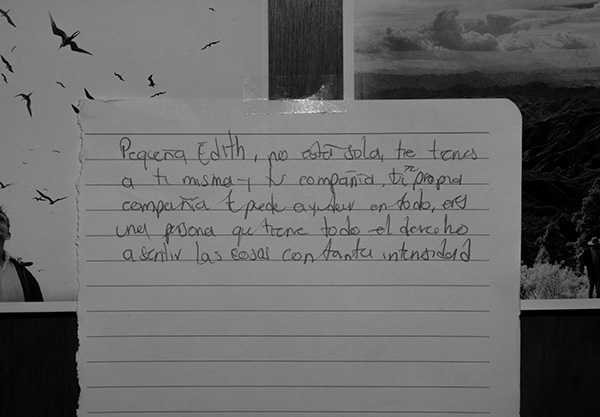 Pequeña Edith, no está sola, te tienes
a ti misma y tu compañia, tu propia
compañia t puede ayudar en todo, eres
una persona que tiene todo el derecho
a sentir las cosas con tanta intensidad